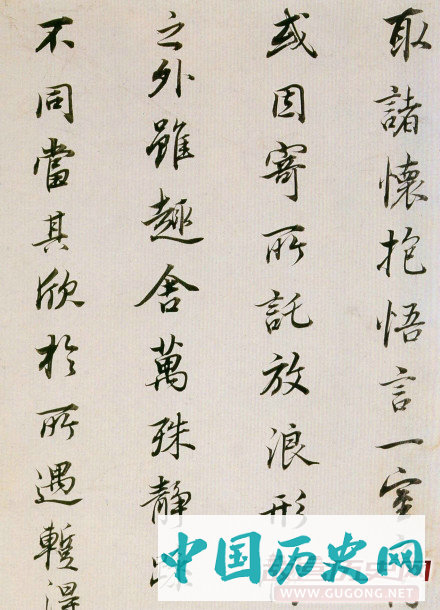 取諸懷抱悟言一室
或因寄所託放浪形
之外雖趣舍萬殊静
不同當其欣於所遇暫得
中国历史网
WWW.GUGONG.NET